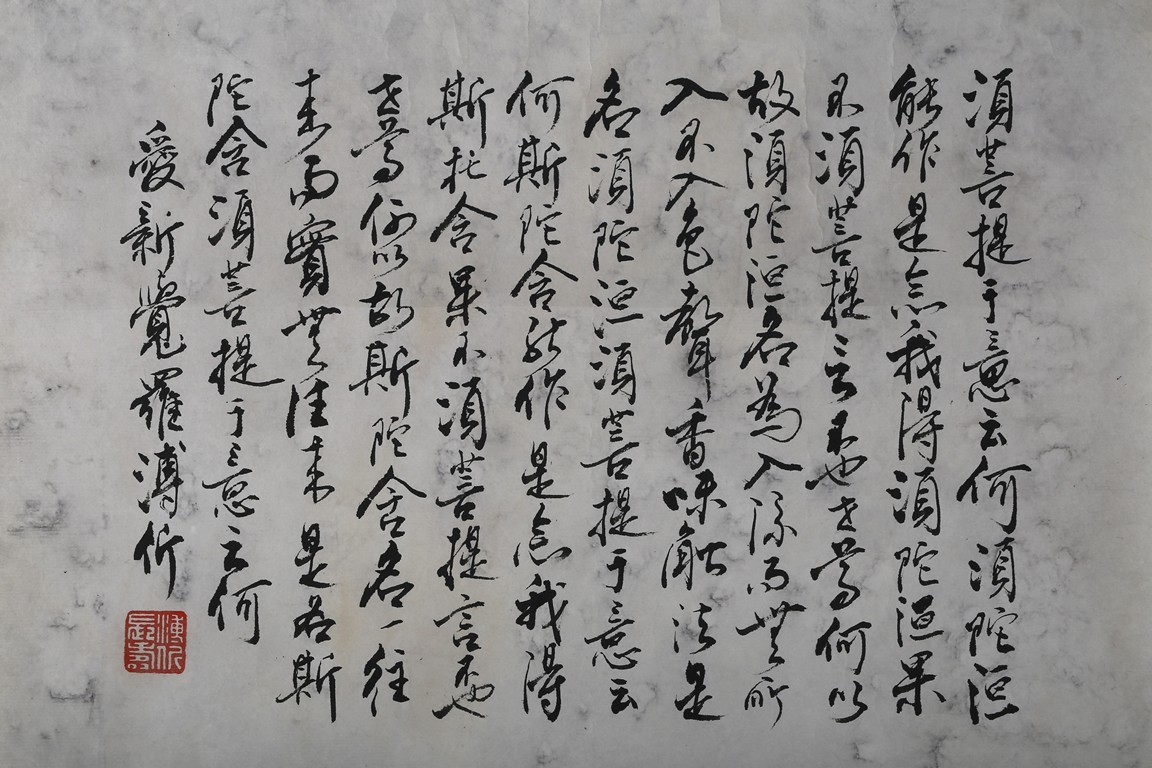 須菩提于意云何須陀洹
能作是念我得須陀洹果
不須菩提言不也世尊何以
故須陀洹名為入流而無所
入不入色聲香味觸法是
名須陀洹須菩提于意云
何斯陀含能作是念我得
斯陀含果不須菩提言不也
世尊何以故斯陀含名一往
来而實無往来是名斯
陀含須菩提于意云何
愛新覺羅溥佐